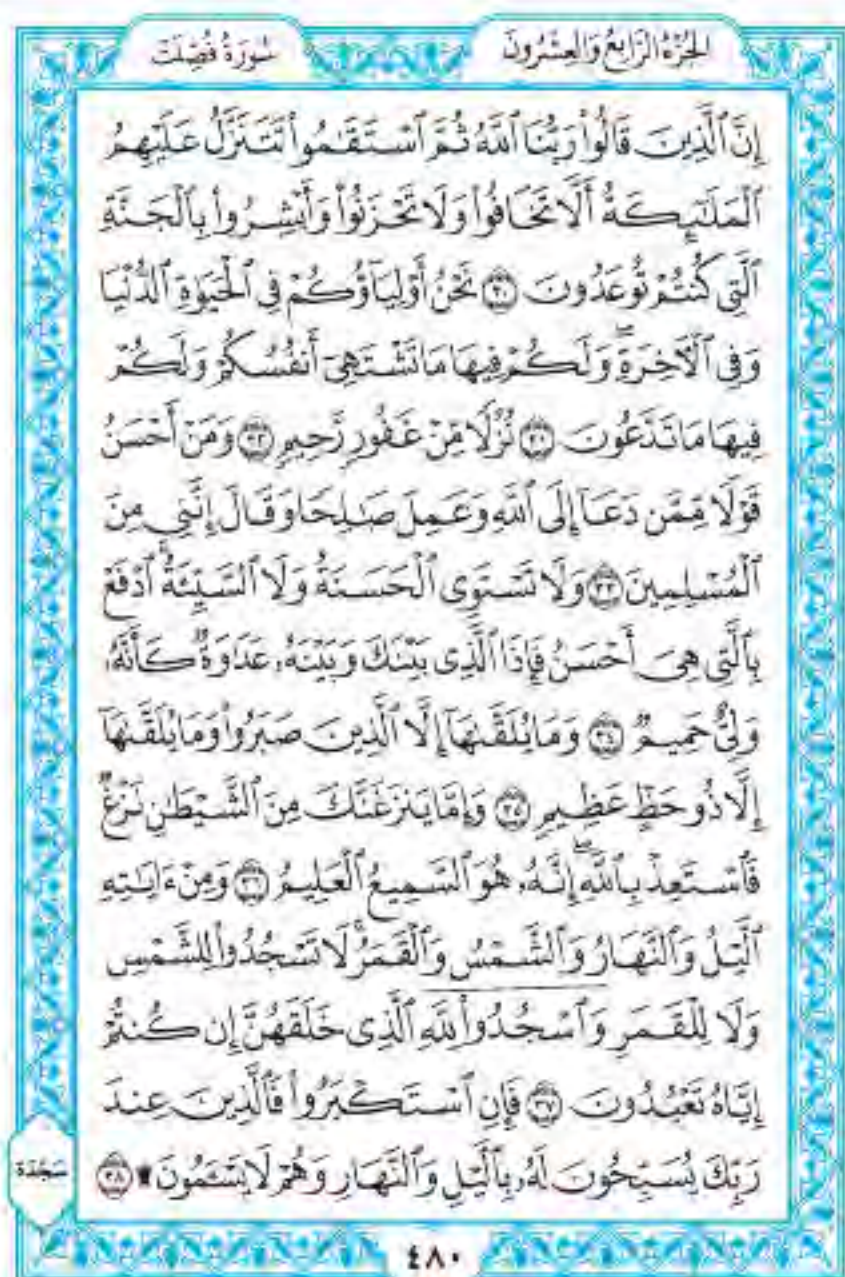 الجزء الرابع والعشرون
سورة فصلت
إِنَّ ٱلَّذِينَ قَالُوا۟ رَبُّنَا ٱللَّهُ ثُمَّ ٱسْتَقَـٰمُوا۟ تَتَنَزَّلُ عَلَيْهِمُ
ٱلْمَلَـٰٓئِكَةُ أَلَّا تَخَافُوا۟ وَلَا تَحْزَنُوا۟ وَأَبْشِرُوا۟ بِٱلْجَنَّةِ
ٱلَّتِى كُنتُمْ تُوعَدُونَ ٣٠ نَحْنُ أَوْلِيَآؤُكُمْ فِى ٱلْحَيَوٰةِ ٱلدُّنْيَا
وَفِى ٱلْـَٔاخِرَةِ ۖ وَلَكُمْ فِيهَا مَا تَشْتَهِىٓ أَنفُسُكُمْ وَلَكُمْ
فِيهَا مَا تَدَّعُونَ ٣١ نُزُلًا مِّنْ غَفُورٍ رَّحِيمٍ ٣٢ وَمَنْ أَحْسَنُ
قَوْلًا مِّمَّن دَعَآ إِلَى ٱللَّهِ وَعَمِلَ صَـٰلِحًا وَقَالَ إِنَّنِى مِنَ
ٱلْمُسْلِمِينَ ٣٣ وَلَا تَسْتَوِى ٱلْحَسَنَةُ وَلَا ٱلسَّيِّئَةُ ۚ ٱدْفَعْ
بِٱلَّتِى هِىَ أَحْسَنُ فَإِذَا ٱلَّذِى بَيْنَكَ وَبَيْنَهُۥ عَدَٰوَةٌ كَأَنَّهُۥ
وَلِىٌّ حَمِيمٌ ٣٤ وَمَا يُلَقَّىٰهَآ إِلَّا ٱلَّذِينَ صَبَرُوا۟ وَمَا يُلَقَّىٰهَآ
إِلَّا ذُو حَظٍّ عَظِيمٍ ٣٥ وَإِمَّا يَنزَغَنَّكَ مِنَ ٱلشَّيْطَـٰنِ نَزْغٌ
فَٱسْتَعِذْ بِٱللَّهِ ۖ إِنَّهُۥ هُوَ ٱلسَّمِيعُ ٱلْعَلِيمُ ٣٦ وَمِنْ ءَايَـٰتِهِ
ٱلَّيْلُ وَٱلنَّهَارُ وَٱلشَّمْسُ وَٱلْقَمَرُ ۚ لَا تَسْجُدُوا۟ لِلشَّمْسِ
وَلَا لِلْقَمَرِ وَٱسْجُدُوا۟ لِلَّهِ ٱلَّذِى خَلَقَهُنَّ إِن كُنتُمْ
إِيَّاهُ تَعْبُدُونَ ٣٧ فَإِنِ ٱسْتَكْبَرُوا۟ فَٱلَّذِينَ عِندَ
رَبِّكَ يُسَبِّحُونَ لَهُۥ بِٱلَّيْلِ وَٱلنَّهَارِ وَهُمْ لَا يَسْـَٔمُونَ ۩ ٣٨
سجدة
٤٨٠